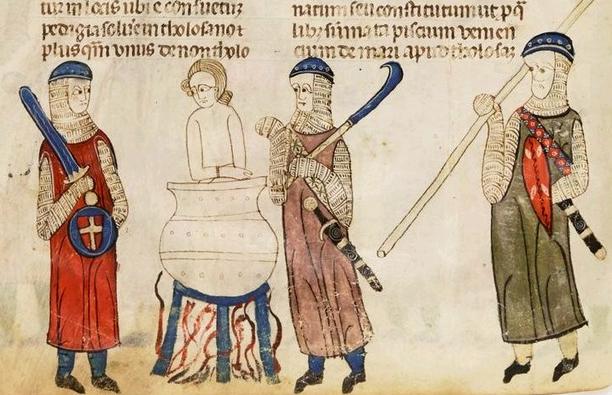 tur in locis ubi e consuetuz
pedigia solue in tholosano
plus qm unus de non tholo
natum seu constitutum ut
piscium venien
cium de mari apud tholosaz